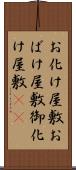 お化け屋敷お
ばけ屋敷御化
け屋敷